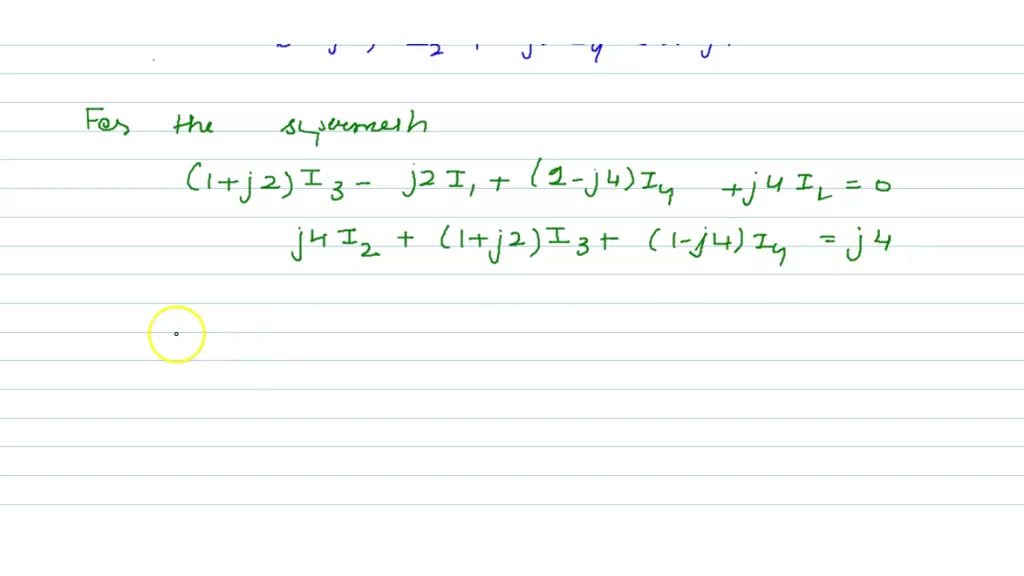 For the supermesh
(1+j2)I₃ - j2I₁ + (2-j4)I₄ +j4I₂ = 0
j4I₂ + (1+j2)I₃ + (1-j4)I₄ = j4